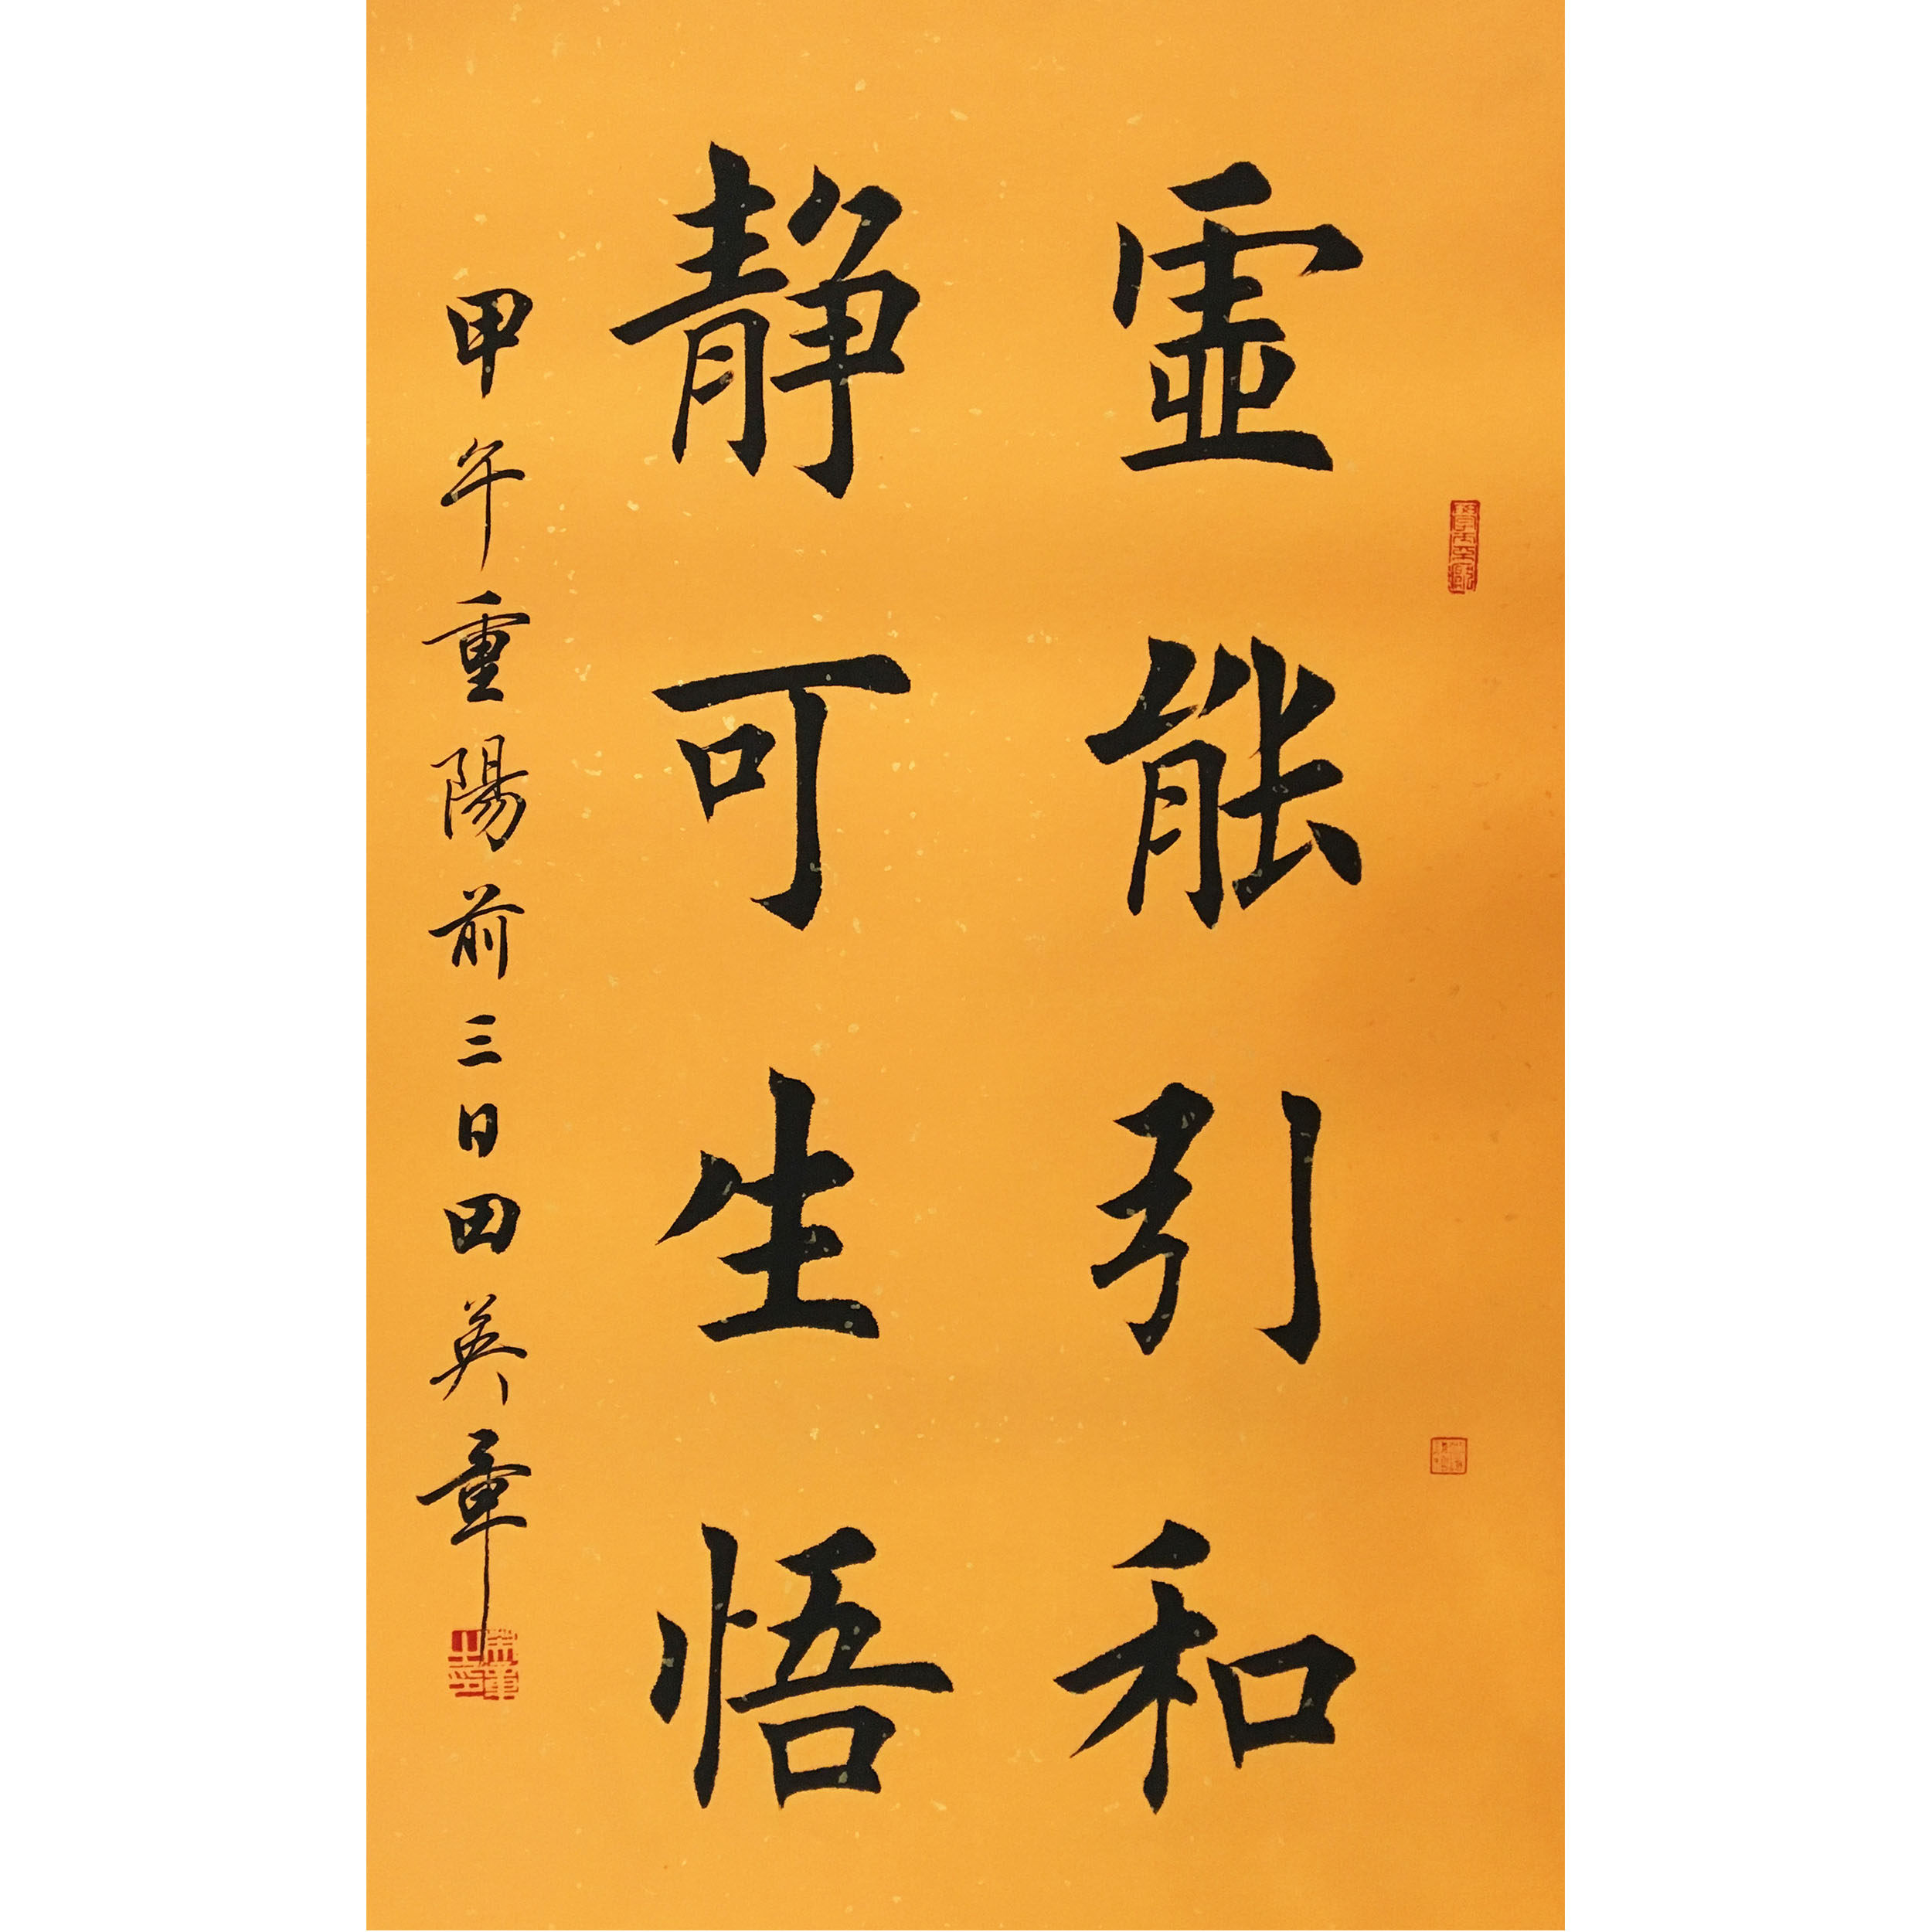 虛能引和
靜可生悟
甲午重陽前三日田英章